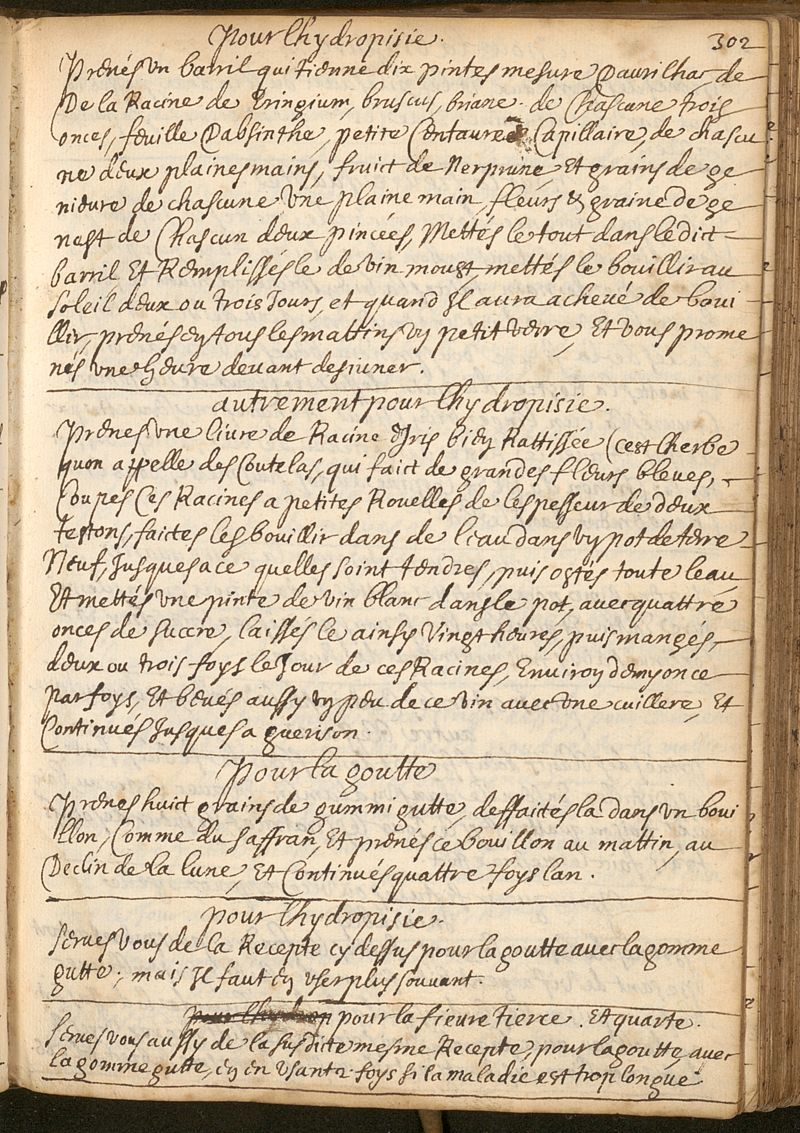 Pour lhydropisie.
302
Prenés un barril qui tienne dix pintes mesure Daurilhac, de
De la Racine de Eringium, bruscus, briane. de Chascune trois
onces, feuille Dabsinthe, petite Centaure Capillaire, de chascu
ne deux plaines mains, fruict de Nerprune, Et grains de ge
nieure de chascune Une plaine main, fleurs & graine de ge
nest de Chascun deux pincées, Mettés le tout dans le dict
barril Et Remplissés le de vin moust mettés le bouillir au
soleil deux ou trois Jours, et quand Jl aura acheué de boui
llir, prenés ey tous les mattins vy petit verre, Et vous prome
nés une heure deuant desiuner.
autrement pour lhydropisie.
Prenes Vne liure de Racine dJris biey Rattissée (cest lherbe
quon appelle des Coutelas, qui faict de grandes fleurs bleues,
Coupés Ces Racines a petites Rouelles de lespesseur de deux
testons, faictes les bouillir dans de leau dans vy pot de terre
Neuf, Jusques a ce quelles soint tendres, puis ostés toute leau
Et mettés vne pinte de vin blanc dans le pot, auec quattre
onces de succre, laissés le ainsy Vingt heures, puis mangés,
deux ou trois foys le Jour de ces Racines, Enuiroy demy once
par foys, Et beués aussy vy peu de ce vin auec vne cuillere, Et
Continués Jusques a guerison.
Pour la goutte
Prenes huict grains de gummi gutte, deffaités la dans vn boui
llon, Comme du saffran, Et prenés ce bouillon au mattin, au
Declin de la lune, Et Continués quattre foys lan.
pour lhydropisie.
Serues vous de la Recepte cy dessus pour la goutte auec la gomme
gutte; mais Jl faut ey vser plus souuant.
pour lhydrop pour la fieure tierce. Et quarte.
Serues vous aussy de la susdicte mesme Recepte, pour la goutte, auec
la gomme gutte, ey en vsant 2 foys si la maladie est trop longue.